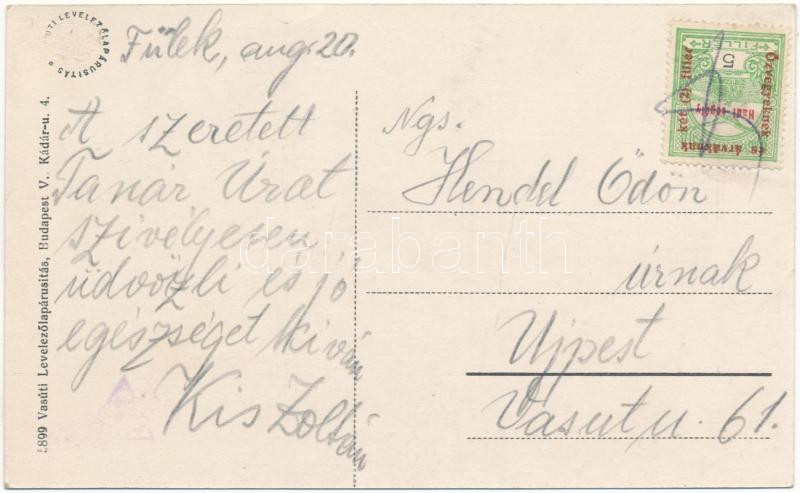 ÚTI LEVELEZŐLAPÁRUSITÁS
Fülek, aug 20.
A szeretett
Tanár Úrat
szivélyesen
üdvözli és jó
egészséget kiván
Kis Zoltán
5899 Vasúti Levelezőlapárusitás, Budapest V., Kádár-u. 4.
FILLÉR
5
Özvegyeknek
és árváknak
két (2) fillér
Hadi segély
Ngs.
Hendel Ödön
úrnak
Ujpest
Vasut u. 61.
darabanth